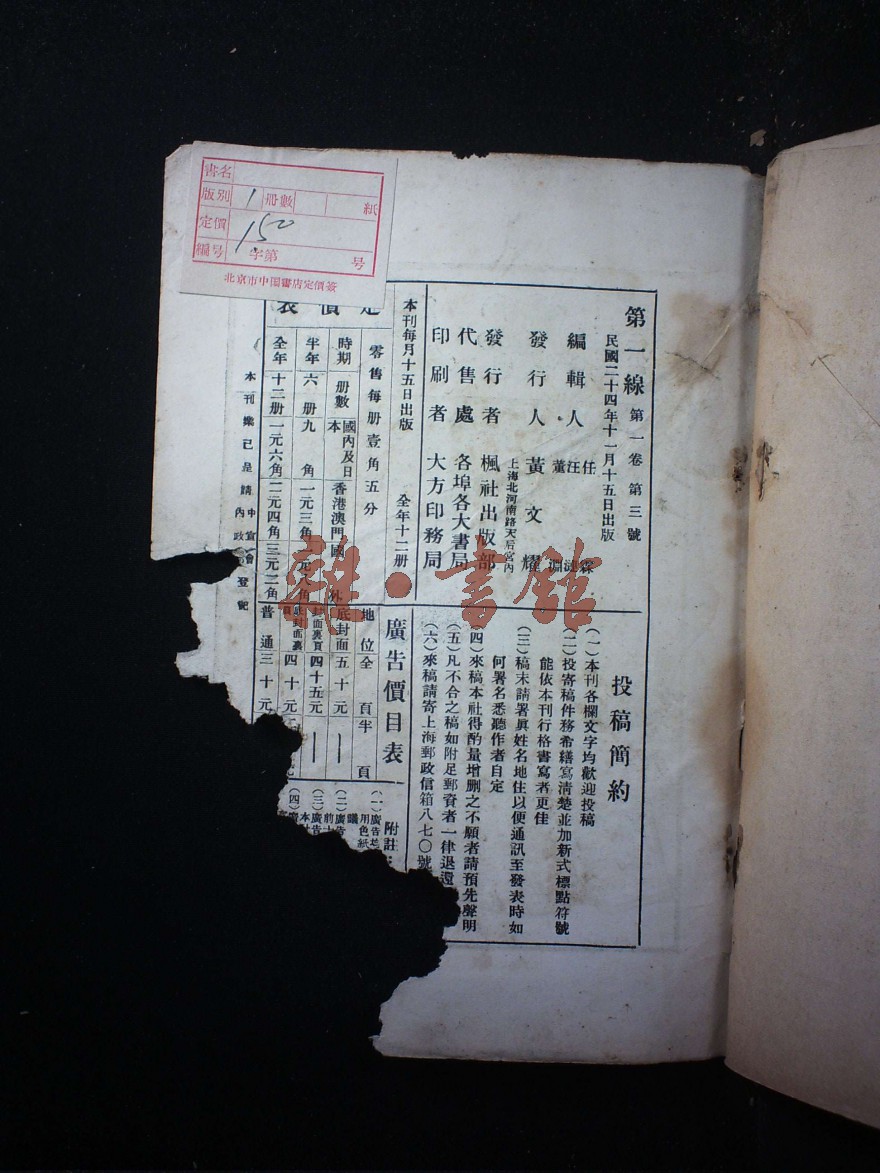 書名
版別 1 册數 紙
定價 1.50
編号 字第 号
北京市中国書店定價簽
第一線 第一卷 第三號
民國二十四年十一月十五日出版
編輯人 任霖 汪漣 董淵
發行人 黃文耀
上海北河南路天后宮內
發行者 楓社出版部
代售處 各埠各大書局
印刷者 大方印務局
本刊每月十五日出版 全年十二册
定價表
零售每册壹角五分
時期 册數 國內及日本 香港澳門 國外
半年 六册 九角 一元三角
全年 十二册 一元六角 二元四角 三元二角
本刊業已呈請中宣會內政部登記
投稿簡約
(一)本刊各欄文字均歡迎投稿
(二)投寄稿件務希繕寫清楚並加新式標點符號
能依本刊行格書寫者更佳
(三)稿末請署眞姓名地住以便通訊至發表時如
何署名悉聽作者自定
(四)來稿本社得酌量增删之不願者請預先聲明
(五)凡不合之稿如附足郵資者一律退還
(六)來稿請寄上海郵政信箱八七〇號
廣告價目表
地位 全頁 半頁
底封面 五十元 —
封面裏頁 四十五元 —
底封面裏頁 四十元
普通 三十元
附註
(一)廣告
用色紙
(二)廣告
(三)廣告
(四)
雜·書館